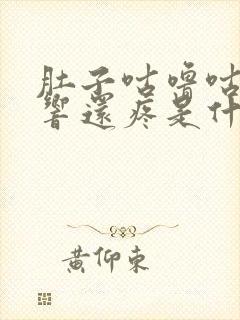 肚子咕噜咕
響還疼是什
黄仰东